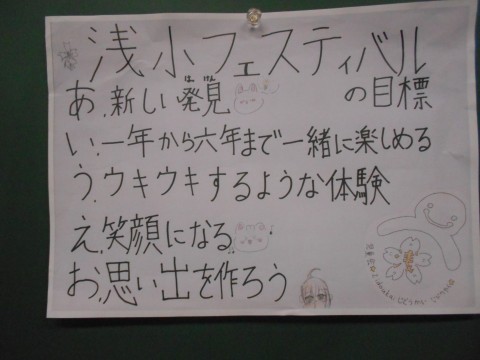 浅小フェスティバル
の目標
あ.新しい発見
い.一年から六年まで一緒に楽しめる
う.ウキウキするような体験
え.笑顔になる
お.思い出を作ろう